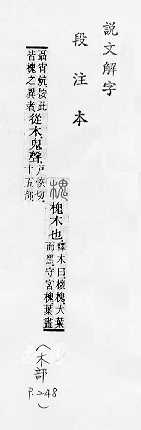 說文解字
段注本
槐
槐木也釋木曰櫰槐大葉
而黑守宮槐葉晝
聶宵炕按此
皆槐之異者
從木鬼聲
戶恢切
十五部
(木部
P.248)